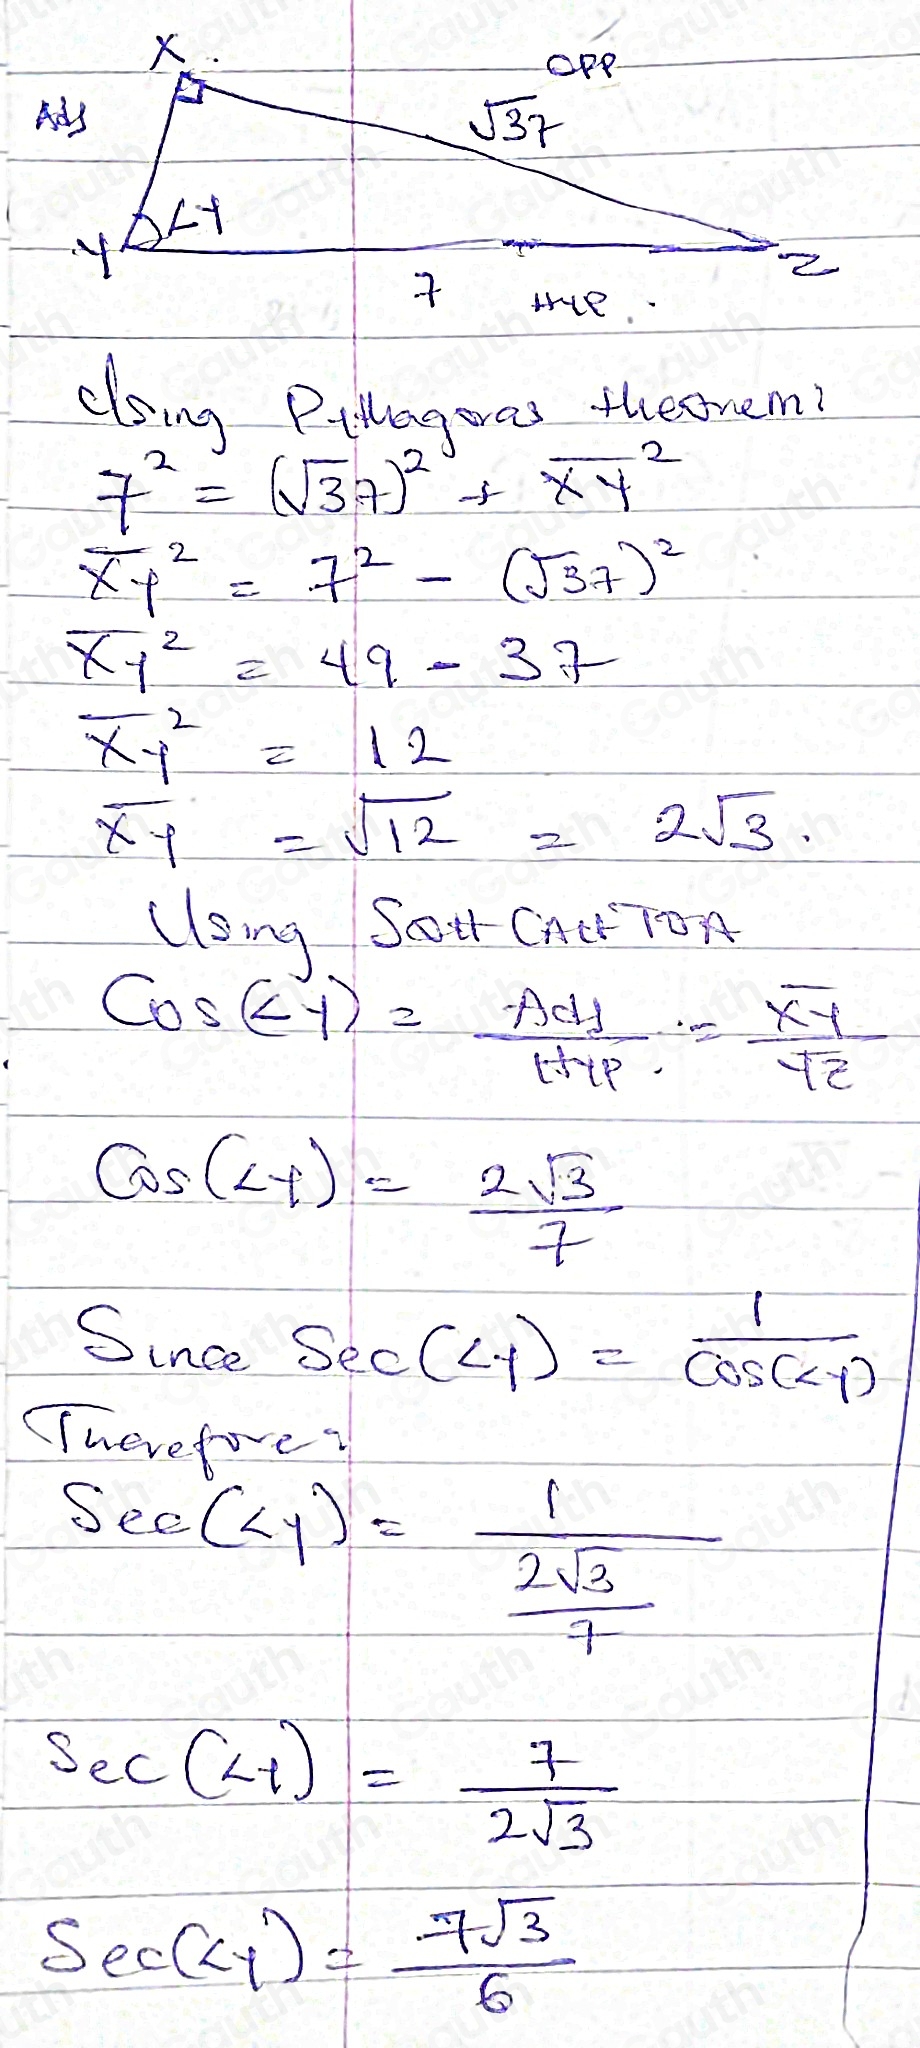 X
OPP
Adj
√37
<Y
Y
Z
7 Hyp.
Using Pythagoras theorem:
7² = (√37)² + XY²
XY² = 7² - (√37)²
XY² = 49 - 37
XY² = 12
XY = √12 = 2√3.
Using SOH CAH TOA
Cos(<Y) = Adj/Hyp. = XY/YZ
Cos(<Y) = 2√3/7
Since Sec(<Y) = 1/Cos(<Y)
Therefore:
Sec(<Y) = 1/(2√3/7)
Sec(<Y) = 7/2√3
Sec(<Y) = 7√3/6